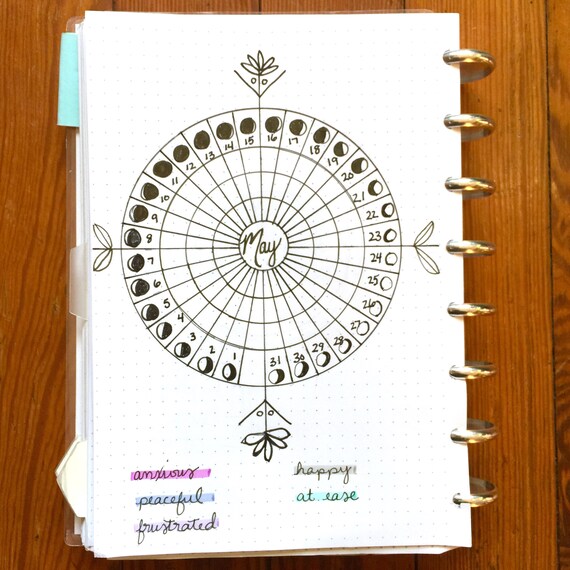 May
1
2
3
4
5
6
7
8
9
10
11
12
13
14
15
16
17
18
19
20
21
22
23
24
25
26
27
28
29
30
31
anxious
peaceful
frustrated
happy
at ease